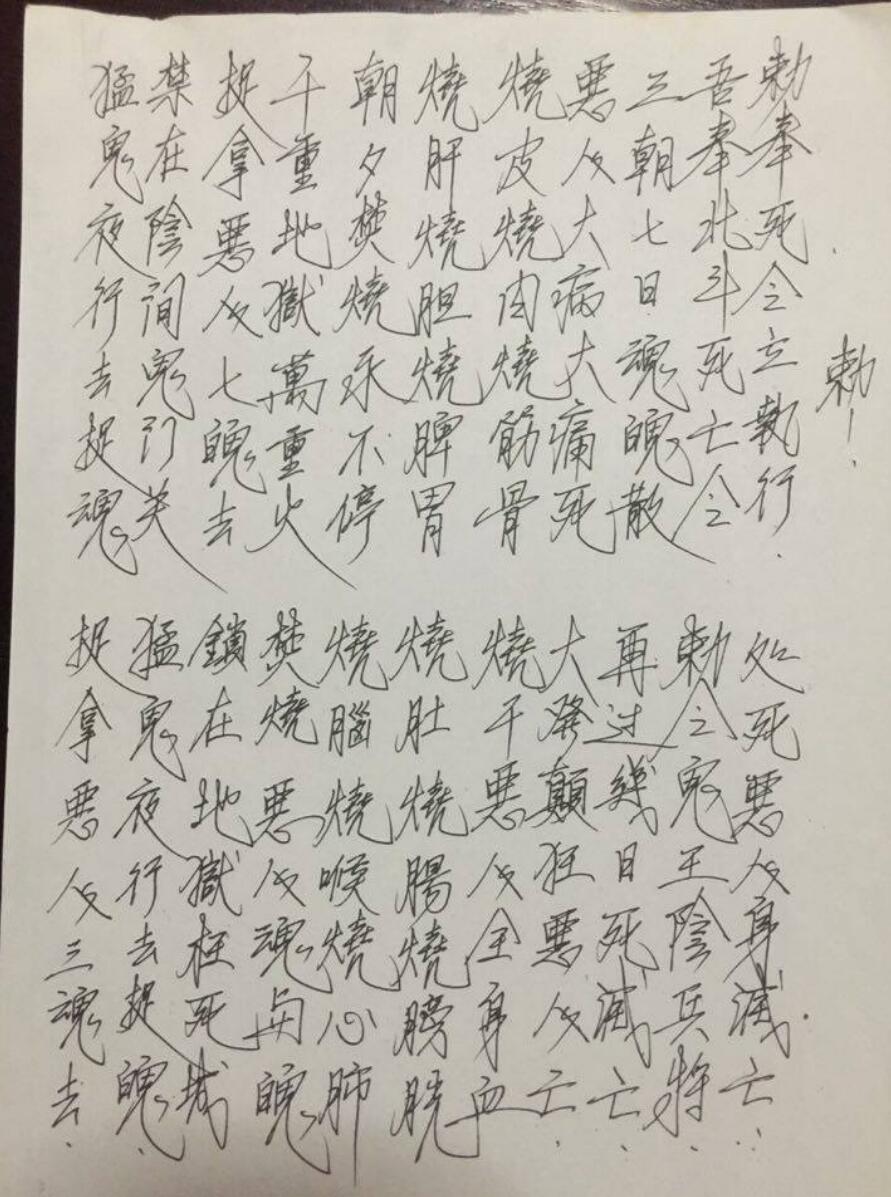 勅
勅奉死令立執行 处死惡人身滅亡
吾奉北斗死亡令 勅令鬼王陰兵將
三朝七日魂魄散 再过幾日死滅亡
惡人大病大痛死 大發顛狂惡人亡
燒皮燒肉燒筋骨 燒干惡人全身血
燒肝燒胆燒脾胃 燒肚燒腸燒膀胱
朝夕焚燒永不停 燒腦燒喉燒心肺
千重地獄萬重火 焚燒惡人魂与魄
捉拿惡人七魄去 鎖在地獄枉死城
禁在陰间鬼门关 猛鬼夜行去捉魄
猛鬼夜行去捉魂 捉拿惡人三魂去